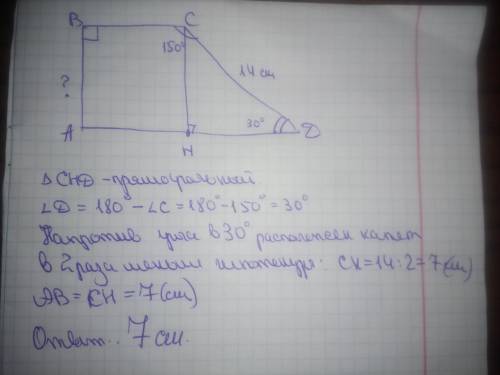 B C
150°
14 см
?
30°
A H D
△CHD - прямоугольный
∠D = 180° - ∠C = 180° - 150° = 30°
Напротив угла в 30° расположен катет
в 2 раза меньше гипотенузы: CK = 14 : 2 = 7 (см)
AB = CH = 7 (см)
Ответ: 7 см.